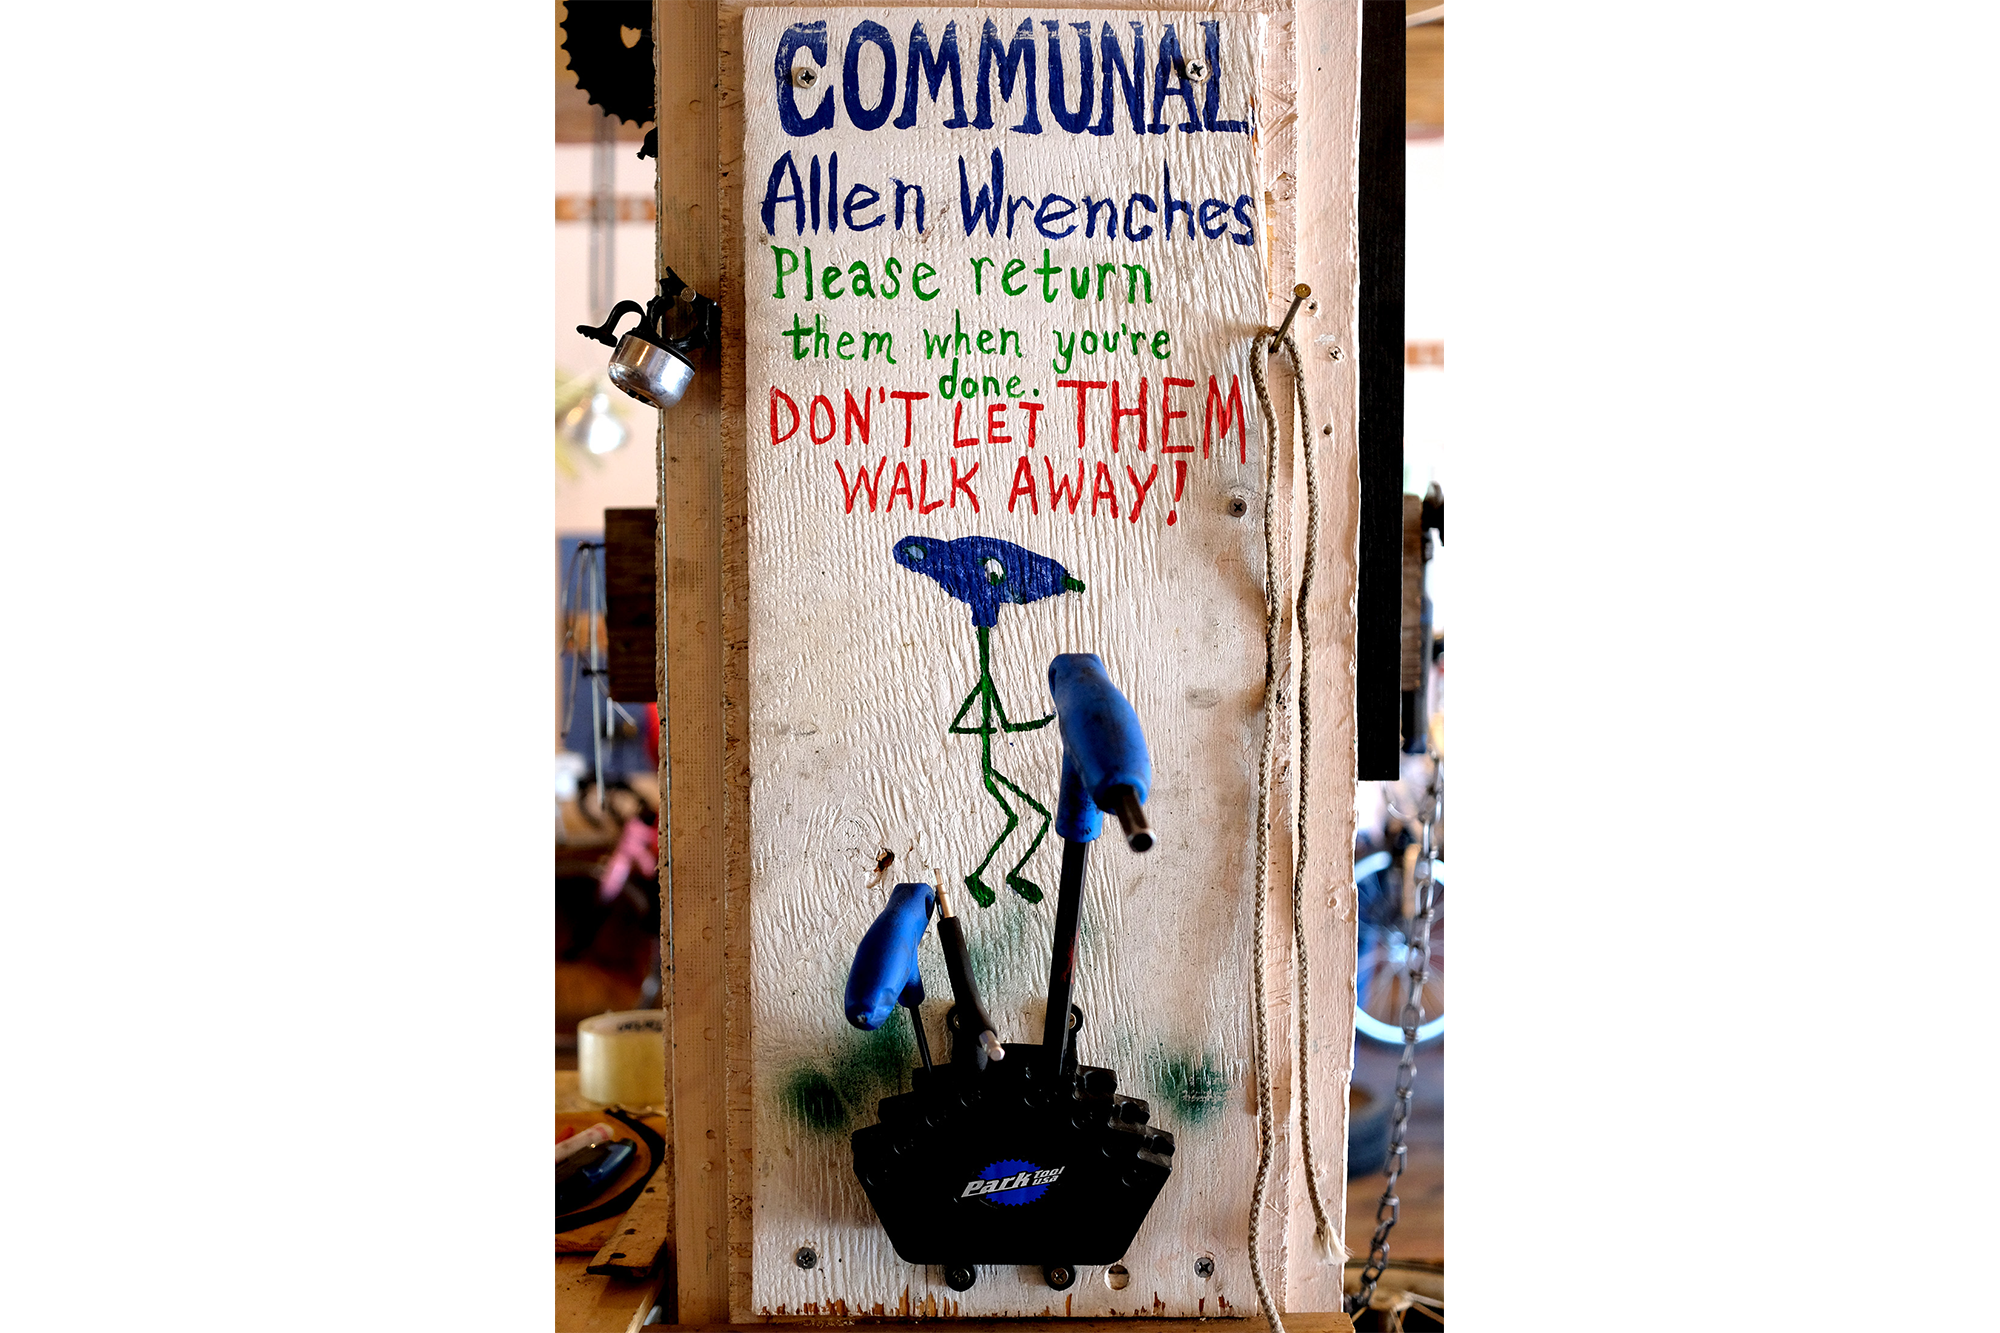 COMMUNAL
Allen Wrenches
Please return
them when you're
done.
DON'T LET THEM
WALK AWAY!
Park Tool
USA